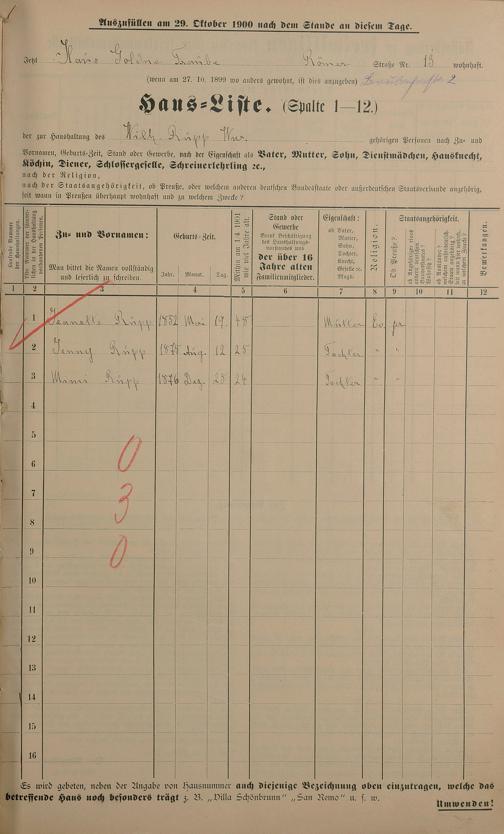 Auszufüllen am 29. Oktober 1900 nach dem Stande an diesem Tage.
Jetzt Haus Goldne Traube Römer Straße Nr. 13 wohnhaft.
(wenn am 27. 10. 1899 wo anders gewohnt, ist dies anzugeben) 2
Haus-Liste. (Spalte 1—12.)
der zur Haushaltung des Wilh. Rupp Wwe. gehörigen Personen nach Zu- und
Vornamen, Geburts-Zeit, Stand oder Gewerbe, nach der Eigenschaft als Vater, Mutter, Sohn, Dienstmädchen, Hausknecht,
Köchin, Diener, Schlossergeselle, Schreinerlehrling ꝛc.,
nach der Religion,
nach der Staatsangehörigkeit, ob Preuße, oder welchem anderen deutschen Bundesstaate oder außerdeutschen Staatsverbande angehörig,
seit wann in Preußen überhaupt wohnhaft und zu welchem Zwecke?
Zu- und Vornamen:
Man bittet die Namen vollständig
und leserlich zu schreiben.
Geburts-Zeit.
Jahr. Monat. Tag.
Mithin am 1/4 1901
wie viel Jahre alt.
Stand oder
Gewerbe
der über 16
Jahre alten
Familienmitglieder.
Eigenschaft:
ob Vater,
Mutter,
Sohn,
Tochter,
Knecht,
Geselle ꝛc.
Magd.
Religion.
Staatsangehörigkeit.
Ob Preuße?
Bemerkungen.
1 2 3 4 5 6 7 8 9 10 11 12
1 Jeanette Rupp 1852 Mai 19. 48 Mutter Ev. pr
2 Jenny Rupp 1875 Aug. 12 25 Tochter " "
3 Rupp 1876 Dez. 23 24 Tochter " "
4
5
6
7
8
9
0
3
0
10
11
12
13
14
15
16
Es wird gebeten, neben der Angabe von Hausnummer auch diejenige Bezeichnung oben einzutragen, welche das
betreffende Haus noch besonders trägt z. B. „Villa Schönbrunn" „San Remo" u. s. w.
Umwenden!